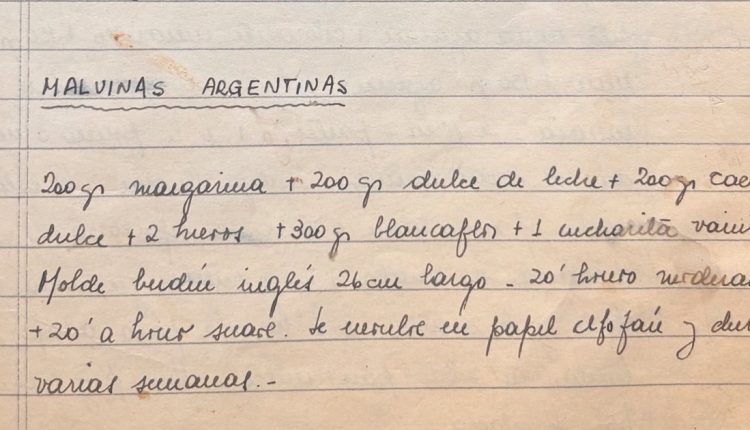 MALVINAS ARGENTINAS
200 gr margarina + 200 gr dulce de leche + 200 gr cac
dulce + 2 huevos + 300 gr blancaflor + 1 cucharita vaini
Molde budín inglés 26 cm largo - 20' horno
+ 20' a horno suave. Se envuelve en papel y
varias semanas.-